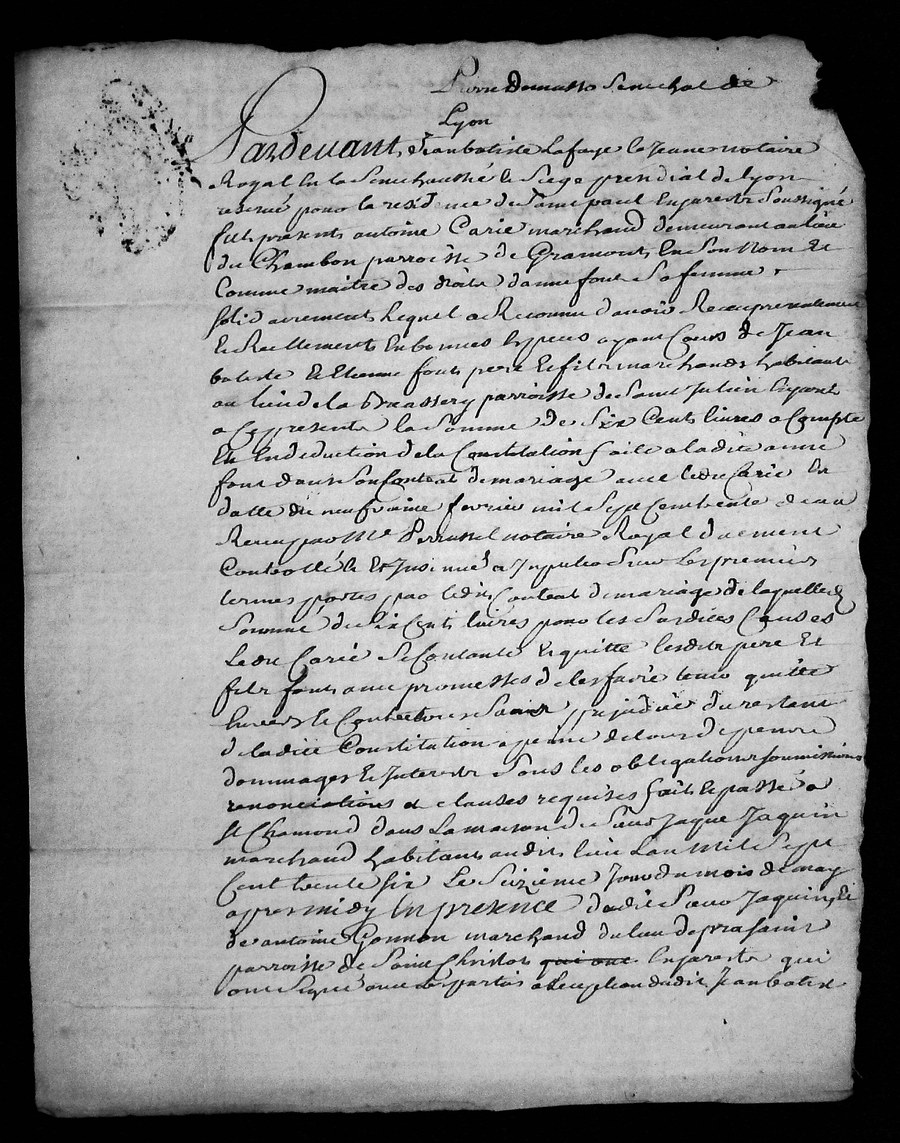 Pierre Demasso Senechal de
Lyon
Pardevant Jean batiste Lafaye le Jeune notaire
Royal En la Senechaussé & Siege presidial de lyon
reservé pour la residence de Saint paul En jarestz Soussigné
fut present antoine Carie marchand demeurant au lieu
du Chambon parroisse de Gramont En Son Nom Et
Comme maitre des droits danne font Sa femme
solidairement lequel a Reconnu d'avoir Receu presentement
Et Reellement En bonnes Especes ayant Cours de Jean
batiste Et Etienne fonts pere Et fils marchands habitants
au lieu de la Brassery parroisse de Saint Julien
a Ce presents la Somme de Six Cent livres a Compte
Et En deduction de la Constitution faite a ladite anne
font dans Son Contrat de mariage avec ledit Carie En
datte du neufvaime fevrier mil Sept Cent trente deux
Receu par Me Perrussel notaire Royal duement
Controllé & Et Insinué a Imputer Sur Les premiers
termes portes par ledit Contrat de mariage de laquelle
Somme de Six Cent livres pour les Susdites Causes
Ledit Carie Se Contante Et quitte lesdits pere Et
fils fonts avec promesses de les faire tenir quitte
Envers Et Contre tous Sans prejudice du restant
de ladite Constitution a peine de tous depens
dommages Et Interests Sous les obligations soumissions
renonciations et clauses requises fait Et passé a
St Chamond dans La maison de Sieur Jaque Jaquin
marchand habitant audit lieu L'an Mil Sept
Cent trente Six Le Seizieme Jour du mois de may
apres midy En presence dudit Sieur Jaquin Et
de antoine Gonnon marchand du lieu de
parroisse de Saint Christot qui ont En jarestz qui
ont Signé avec les parties a l'exception dudit Jean batiste